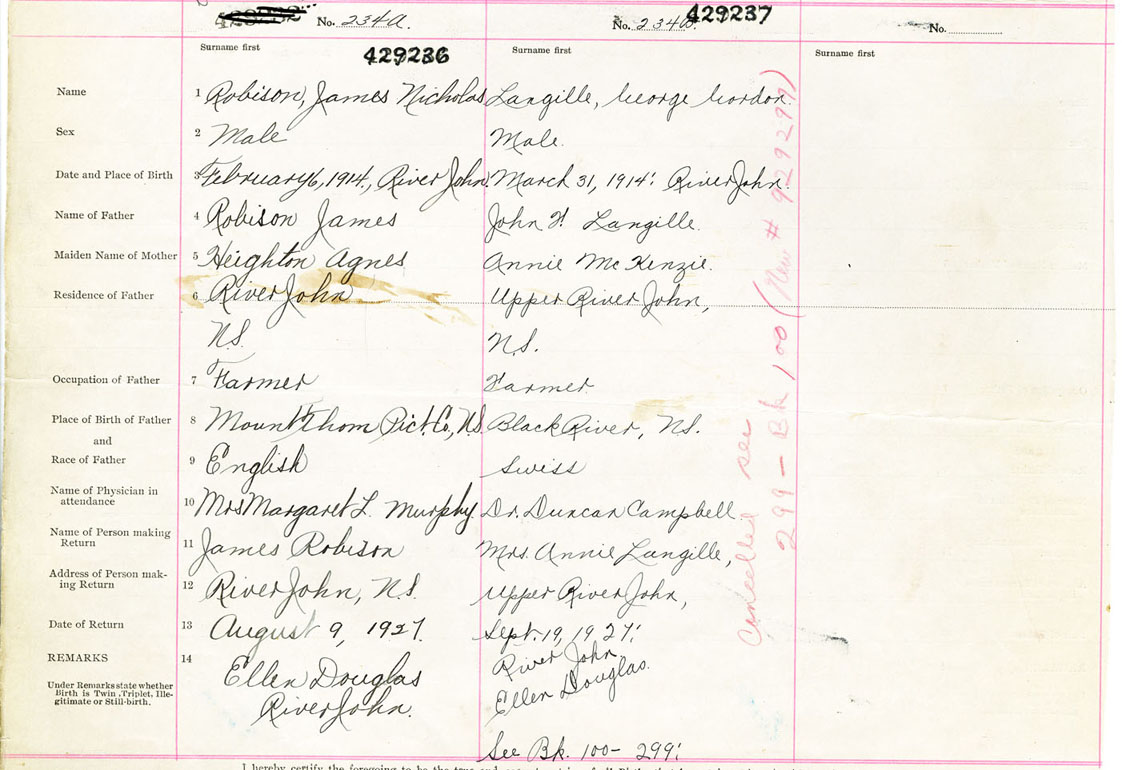 No. 234A.
No. 234B.
429237
No.
Surname first
429236
Surname first
Surname first
Name
1 Robison, James Nicholas
Langille, George Gordon.
Sex
2 Male
Male.
Date and Place of Birth
3 February 6, 1914, River John.
March 31, 1914. River John.
Name of Father
4 Robison James
John F. Langille.
Maiden Name of Mother
5 Heighton Agnes
Annie McKenzie.
Residence of Father
6 River John
Upper River John,
N.S.
N.S.
Occupation of Father
7 Farmer
Farmer
Place of Birth of Father
8 Mount Thom Pict. Co., N.S.
Black River, N.S.
and
Race of Father
9 English
Swiss
Name of Physician in
attendance
10 Mrs Margaret L. Murphy.
Dr. Duncan Campbell
Name of Person making
Return
11 James Robison
Mrs. Annie Langille,
Address of Person mak-
ing Return
12 River John, N.S.
Upper River John,
Date of Return
13 August 9, 1927.
Sept. 19, 1927.
REMARKS
14 Ellen Douglas
River John.
River John
Ellen Douglas.
Under Remarks state whether
Birth is Twin, Triplet, Ille-
gitimate or Still-birth.
See Bk. 100- 299.
Cancelled see
299 - Bk 100 (New # 929299)
I hereby certify the foregoing to be the true and